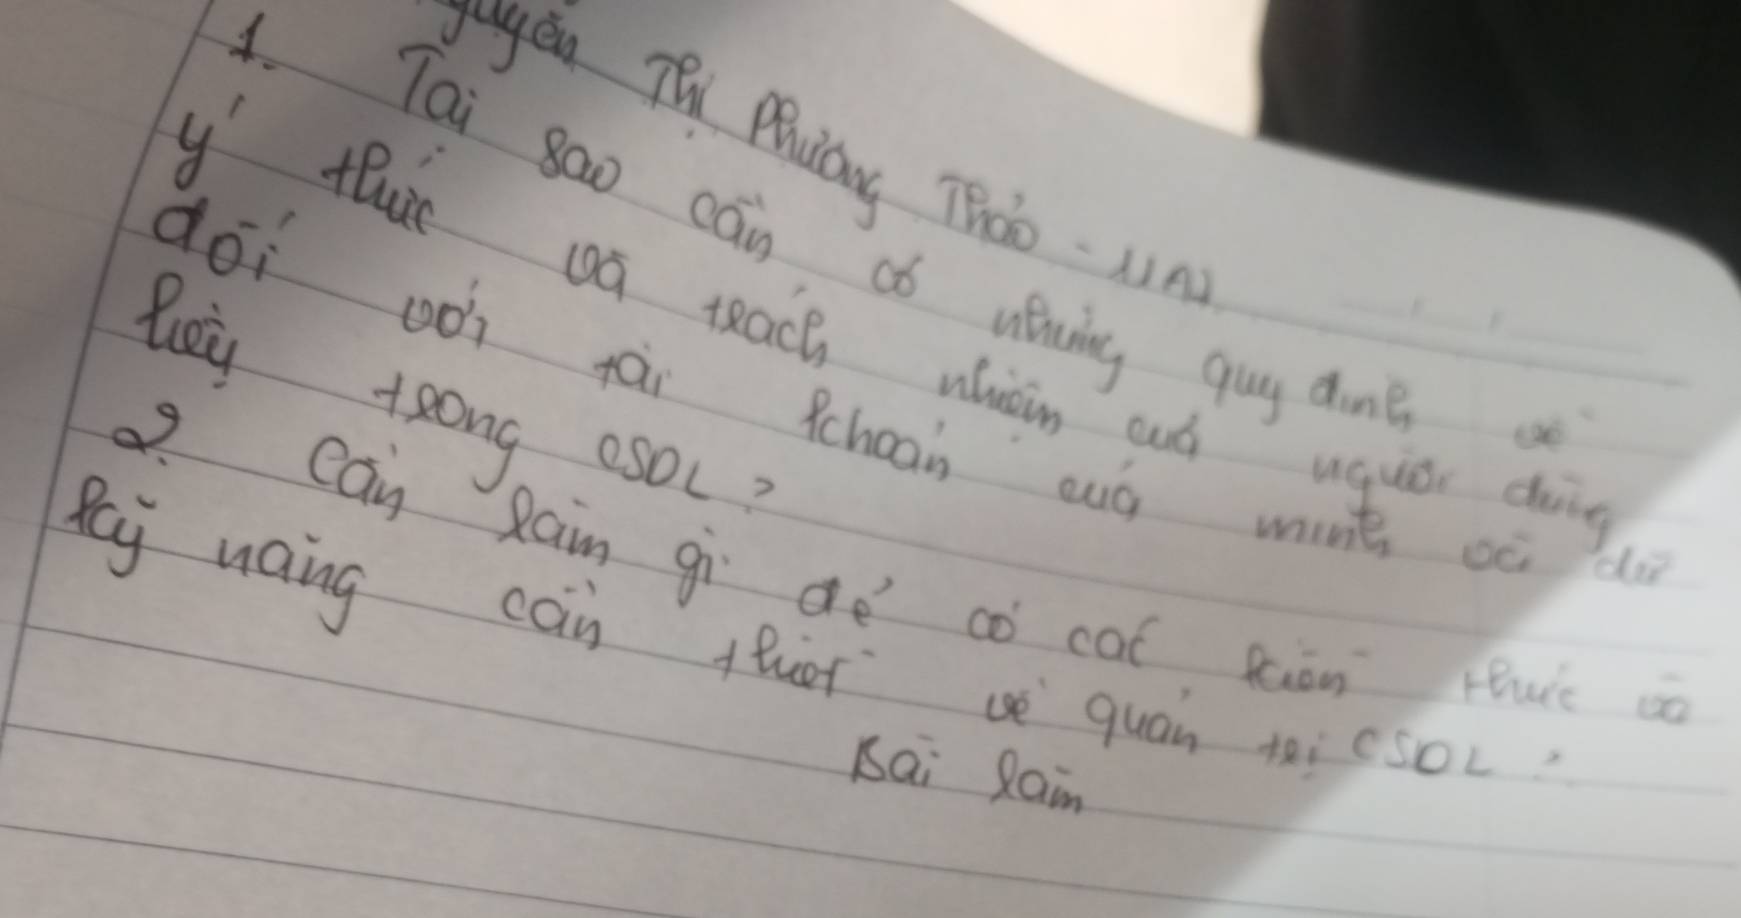 Nguyễn Thị Phương Thảo - 11A1
1. Tại sao cần có những quy định về
ý thức và trách nhiệm của người dùng
đối với tài khoản của mình và dữ
liệu trong CSDL?
2. Cần làm gì để có các kiến thức và
kỹ năng cần thiết về quản trị CSDL?
Bài làm